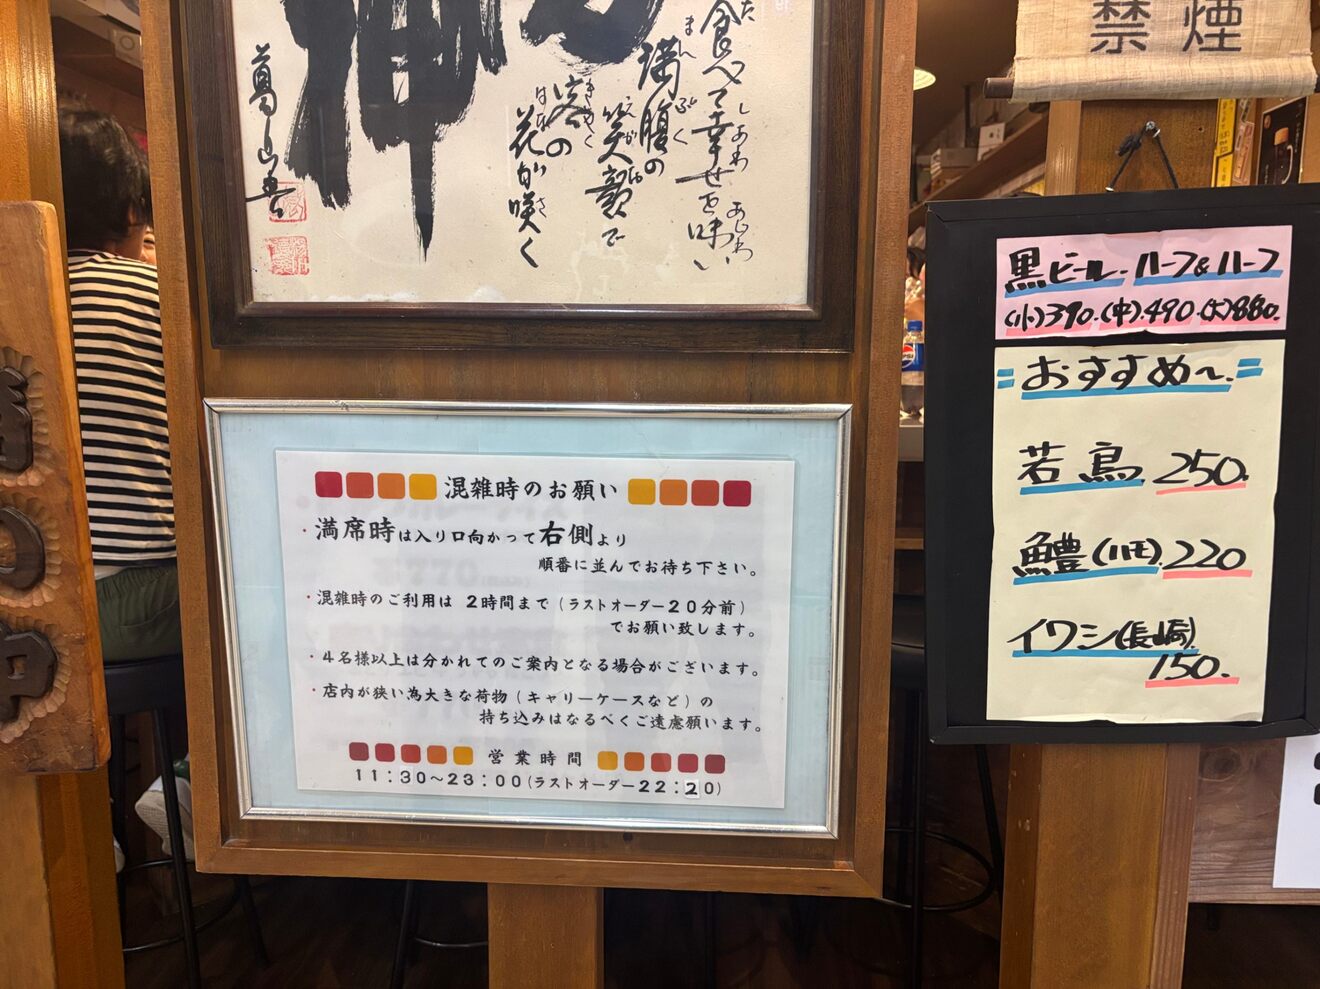 食べて幸せを味い
たしあわあじわ
満腹の
まんぷく
笑顔で
えがお
客の
きゃく
花が咲く
はなさ
葛山
禁煙
混雑時のお願い
・満席時は入り口向かって右側より
順番に並んでお待ち下さい。
・混雑時のご利用は 2時間まで(ラストオーダー20分前)
でお願い致します。
・4名様以上は分かれてのご案内となる場合がございます。
・店内が狭い為大きな荷物(キャリーケースなど)の
持ち込みはなるべくご遠慮願います。
営業時間
11:30~23:00(ラストオーダー22:20)
黒ビール・ハーフ&ハーフ
(小)390.(中)490.(大)880.
=おすすめ~=
若鳥 250.
鱧(ハモ).220
イワシ(長崎).
150.
pepsi